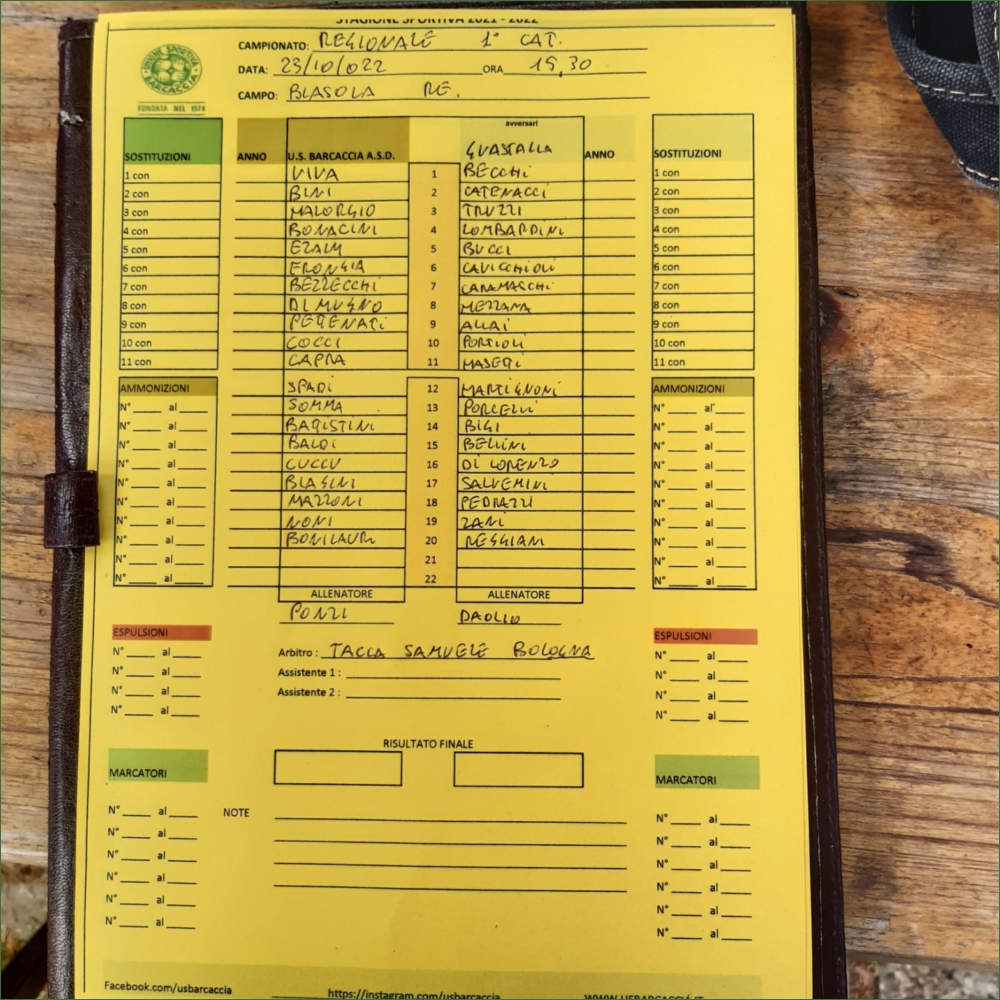 STAGIONE SPORTIVA 2021 - 2022
CAMPIONATO: REGIONALE 1° CAT.
DATA: 23/10/022 ORA 15,30
CAMPO: BIASOLA RE.
FONDATA NEL 1974
avversari
SOSTITUZIONI ANNO U.S. BARCACCIA A.S.D. GUASTALLA ANNO SOSTITUZIONI
1 con VIVA 1 BECCHI 1 con
2 con BINI 2 CATENACCI 2 con
3 con MALORGIO 3 TRUZZI 3 con
4 con BONACINI 4 LOMBARDINI 4 con
5 con EZAIM 5 BUCCI 5 con
6 con FRONGIA 6 CAVICCHIOLI 6 con
7 con BEZZECCHI 7 CARAMASCHI 7 con
8 con DI MUGNO 8 MEZZANA 8 con
9 con PETENATI 9 ALLAI 9 con
10 con COCCI 10 PORTIOLI 10 con
11 con CAPRA 11 MASETTI 11 con
AMMONIZIONI SPADI 12 MARTIGNONI AMMONIZIONI
N° al SOMMA 13 PORCELLI N° al
N° al BATISTINI 14 BIGI N° al
N° al BALDI 15 BELLINI N° al
N° al CUCCU 16 DI LORENZO N° al
N° al BIAGINI 17 SALVEMINI N° al
N° al MAZZONI 18 PEDRAZZI N° al
N° al NONI 19 ZANI N° al
N° al BONILAURI 20 REGGIANI N° al
N° al 21 N° al
N° al 22 N° al
ALLENATORE ALLENATORE
PONZI DAOLIO
ESPULSIONI ESPULSIONI
N° al Arbitro : TACCA SAMUELE BOLOGNA N° al
N° al Assistente 1 : N° al
N° al Assistente 2 : N° al
N° al N° al
RISULTATO FINALE
MARCATORI MARCATORI
N° al NOTE N° al
N° al N° al
N° al N° al
N° al N° al
N° al N° al
N° al N° al
Facebook.com/usbarcaccia https://instagram.com/usbarcaccia WWW.USBARCACCIA.IT